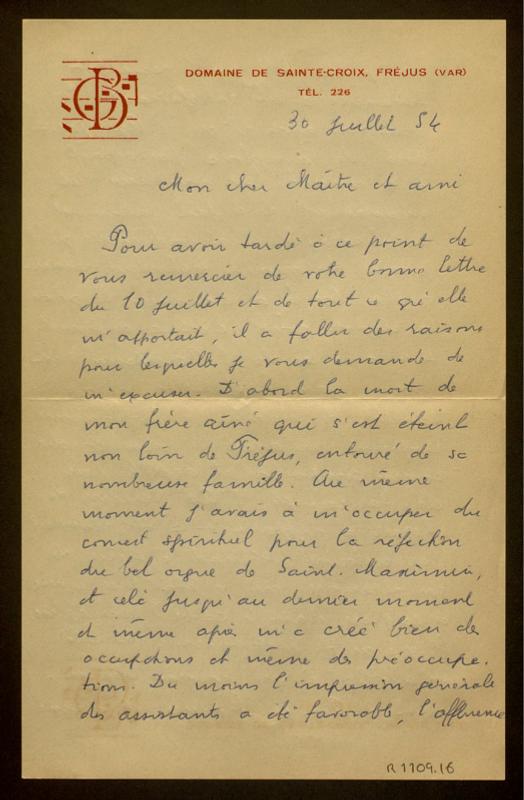 DOMAINE DE SAINTE-CROIX, FRÉJUS (VAR)
TÉL. 226
30 Juillet 54
Mon cher Maître et ami
Pour avoir tardé à ce point de
vous remercier de votre bonne lettre
du 10 Juillet et de tout ce qu'elle
m'apportait, il a fallu des raisons
pour lesquelles je vous demande de
m'excuser. D'abord la mort de
mon frère aîné qui s'est éteint
non loin de Fréjus, entouré de sa
nombreuse famille. Au même
moment j'avais à m'occuper du
concert spirituel pour la réfection
du bel orgue de Saint-Maximin,
et cela jusqu'au dernier moment
et même après m'a créé bien des
occupations et même des préoccupa-
tions. Du moins l'impression générale
des assistants a été favorable, l'affluence
R 1109.16